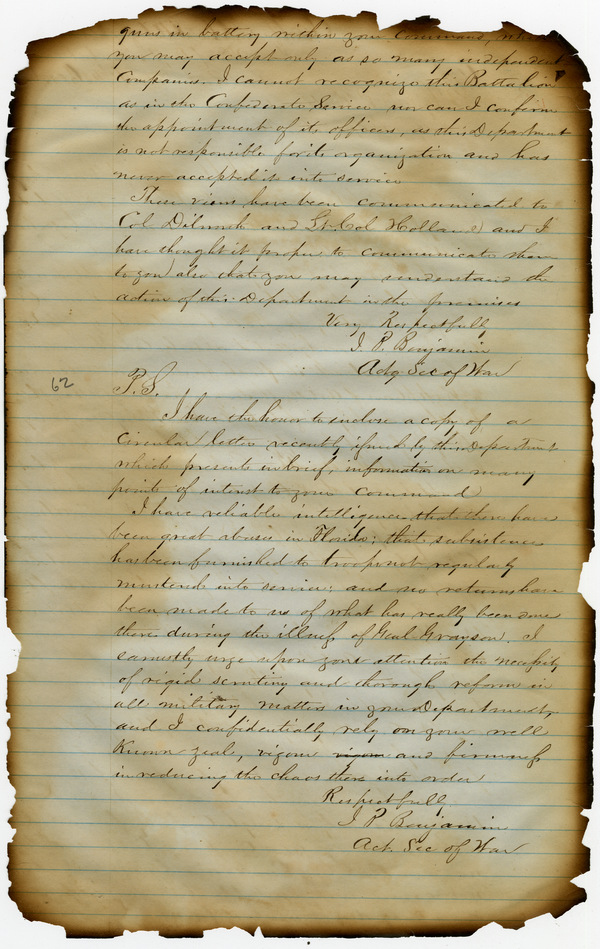 guns in battery within your Command, which
you may accept only as so many independent
Companies. I cannot recognize this Battalion
as in the Confederate Service nor can I confirm
the appointment of its officers, as this Department
is not responsible for its organization and has
never accepted it into service
These views have been communicated to
Col Dilworth and Lt. Col Holland and I
have thought it proper to communicate them
to you also that you may understand the
action of this Department in the premises
Very Respectfully
J. P. Benjamin
Actg Sec of War
62
P.S.
I have the honor to enclose a copy of a
Circular letter recently issued by this Department
which presents in brief, information on many
points of interest to your command
I have reliable intelligence that there have
been great abuses in Florida; that subsistence
has been furnished to troops not regularly
mustered into service; and no returns have
been made to us of what has really been done
there during the illness of Genl Grayson. I
earnestly urge upon your attention the necessity
of rigid scrutiny and thorough reform in
all military matters in your Department,
and I confidentially rely on your well
known zeal, vigour vigour and firmness
in reducing the chaos there into order
Respectfully
J P Benjamin
Act. Sec of War